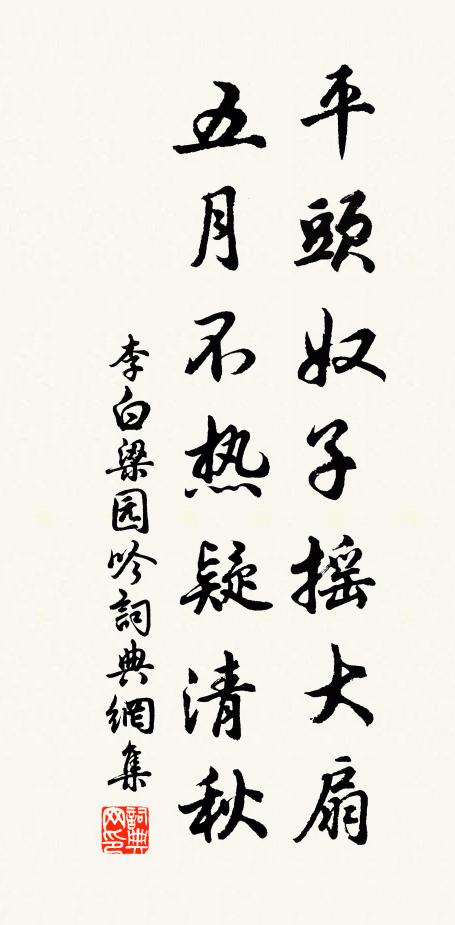 平頭奴子摇大扇
五月不热疑清秋
李白梁园吟詞典網集
詞典
网印